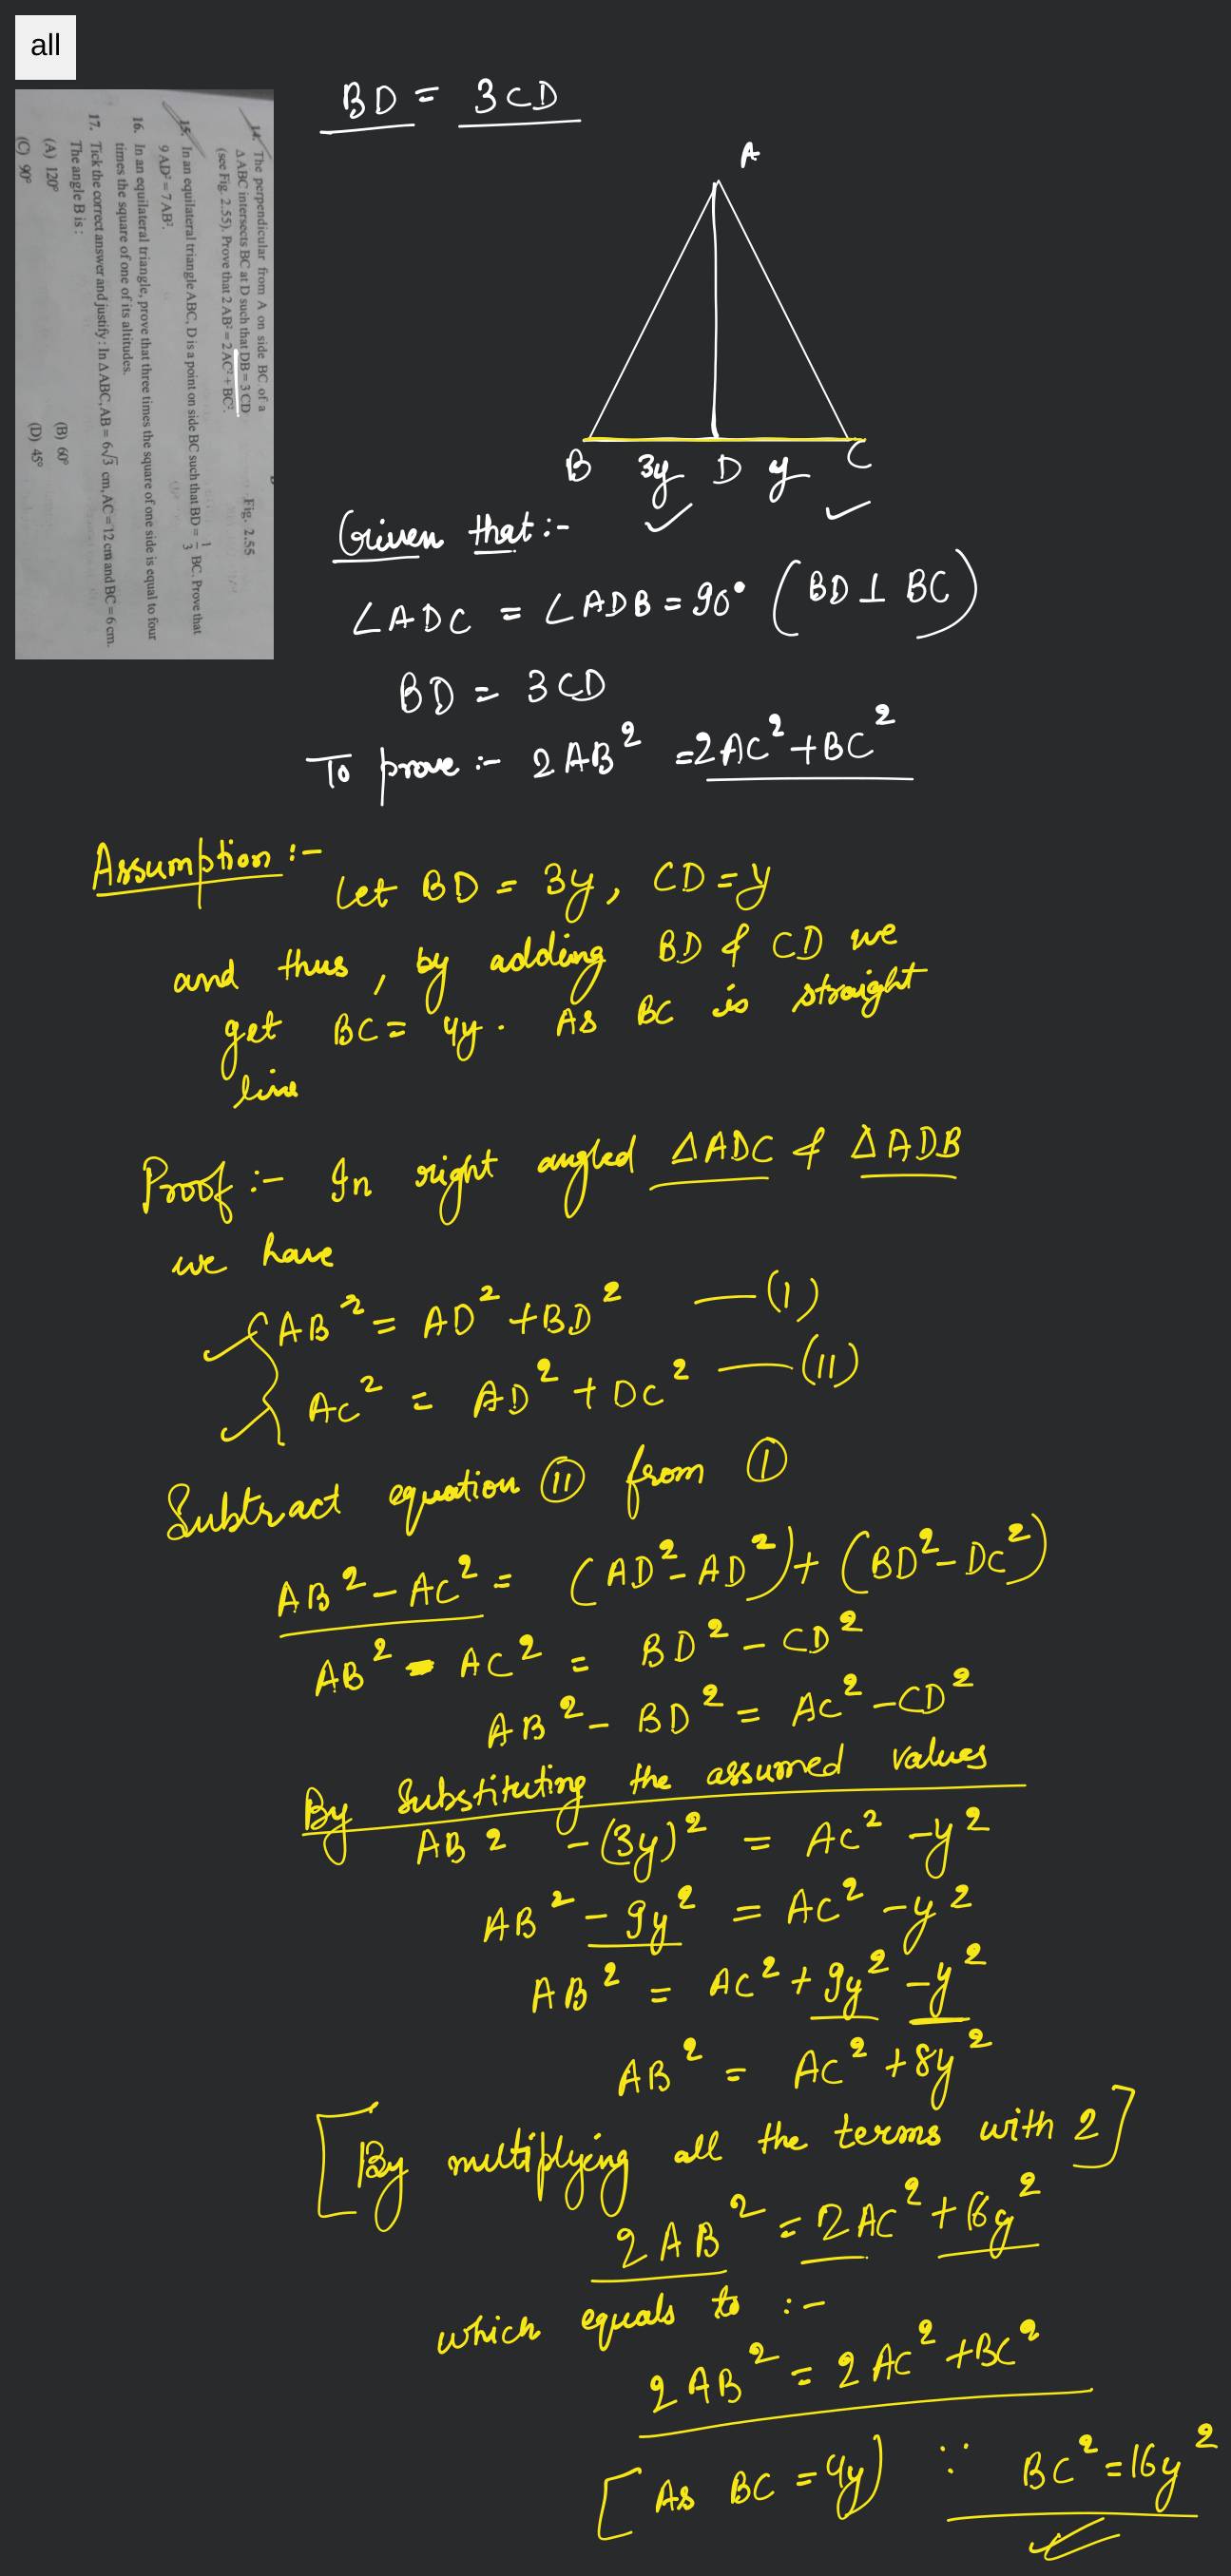 all
14. The perpendicular from A on side BC of a
Δ ABC intersects BC at D such that DB = 3 CD
(see Fig. 2.55). Prove that 2 AB² = 2 AC² + BC².
Fig. 2.55
15. In an equilateral triangle ABC, D is a point on side BC such that BD = 1/3 BC. Prove that
9 AD² = 7 AB².
16. In an equilateral triangle, prove that three times the square of one side is equal to four
times the square of one of its altitudes.
17. Tick the correct answer and justify : In Δ ABC, AB = 6√3 cm, AC = 12 cm and BC = 6 cm.
The angle B is :
(A) 120° (B) 60°
(C) 90° (D) 45°
BD = 3CD
A
B 3y D y C
Given that :-
∠ADC = ∠ADB = 90° (BD ⊥ BC)
BD = 3CD
To prove :- 2AB² = 2AC² + BC²
Assumption :-
Let BD = 3y, CD = y
and thus, by adding BD & CD we
get BC = 4y. As BC is straight
line
Proof :- In right angled ΔADC & ΔADB
we have
AB² = AD² + BD² —(I)
AC² = AD² + DC² —(II)
Subtract equation (II) from (I)
AB² - AC² = (AD² - AD²) + (BD² - DC²)
AB² - AC² = BD² - CD²
AB² - BD² = AC² - CD²
By Substituting the assumed values
AB² - (3y)² = AC² - y²
AB² - 9y² = AC² - y²
AB² = AC² + 9y² - y²
AB² = AC² + 8y²
[By multiplying all the terms with 2]
2AB² = 2AC² + 16y²
which equals to :-
2AB² = 2AC² + BC²
[As BC = 4y) ∵ BC² = 16y²